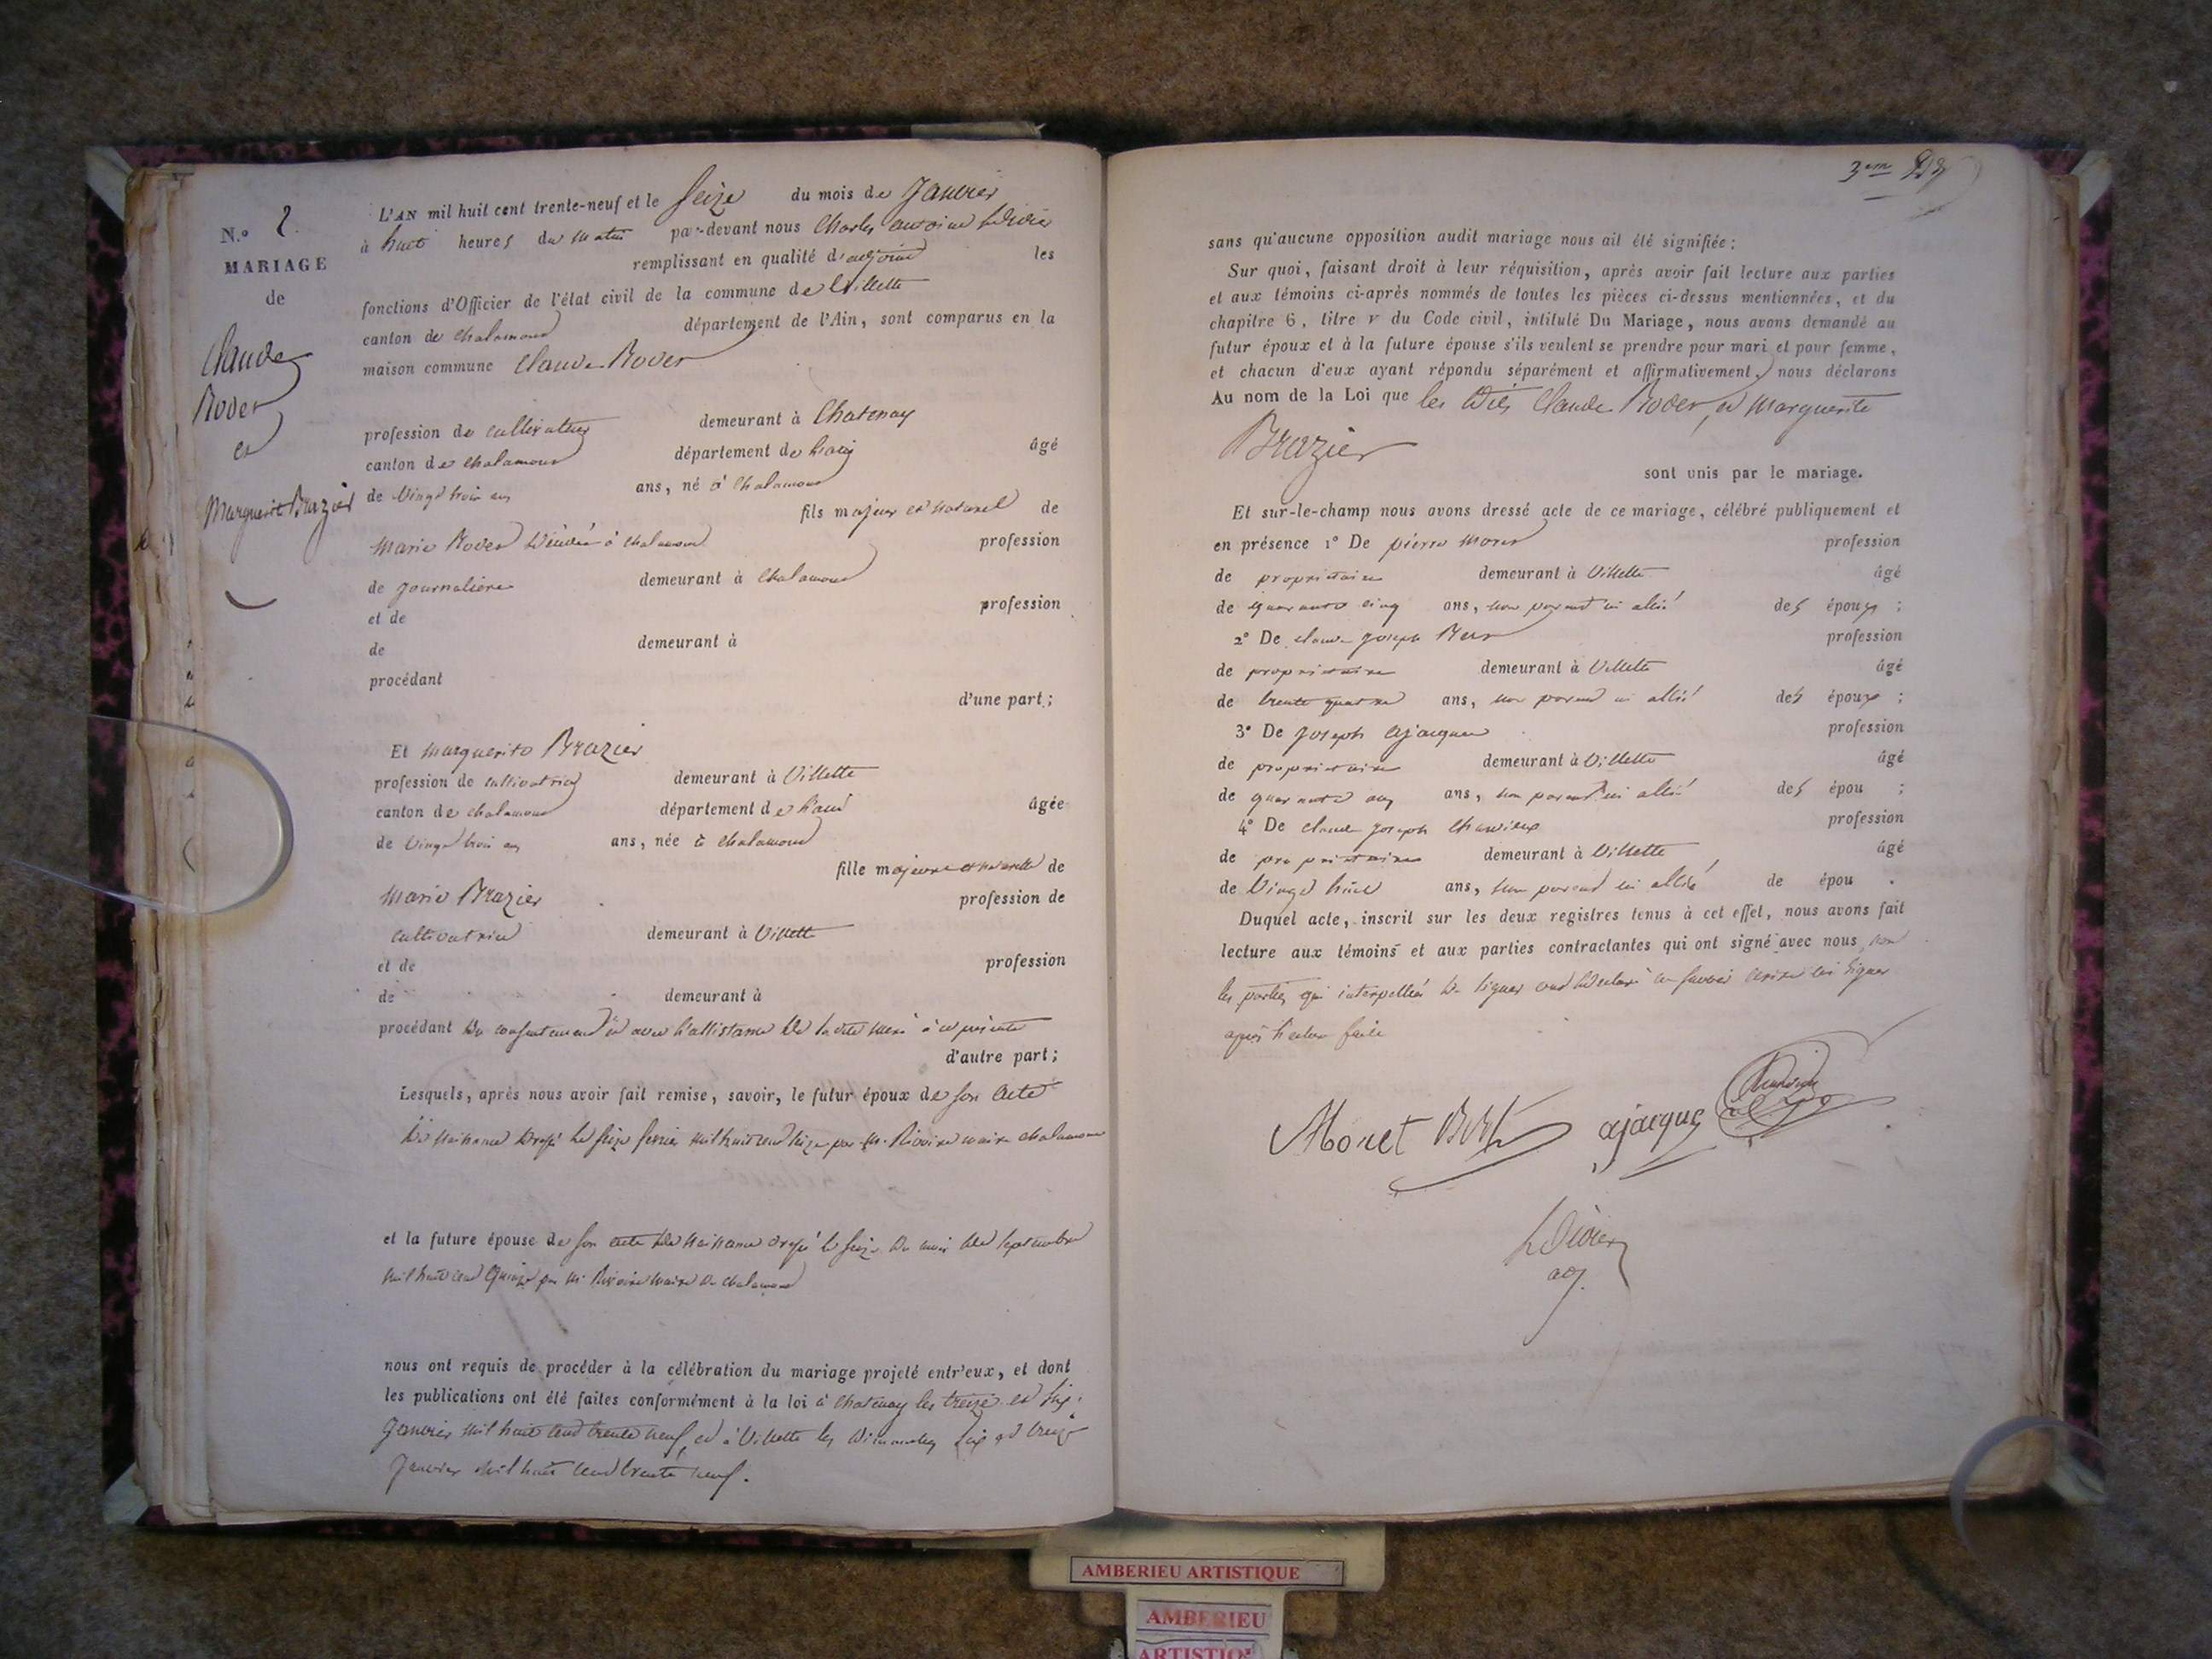 N.º 2.
MARIAGE
de
Claude
Rodet
et
Marguerite Brazier
L'AN mil huit cent trente-neuf et le Seize du mois de Janvier
à huit heures du matin par-devant nous Charles antoine
remplissant en qualité d'adjoint les
fonctions d'Officier de l'état civil de la commune de Villette
canton de Chalamont département de l'Ain, sont comparus en la
maison commune Claude Rodet
profession de cultivateur demeurant à Chatenay
canton de chalamont département de l'ain âgé
de Vingt trois ans ans, né à Chalamont
fils majeur et naturel de
Marie Rodet à chalamont profession
de journaliere demeurant à Chalamont
et de profession
de demeurant à
procédant
d'une part;
Et Marguerite Brazier
profession de cultivatrice demeurant à Villette
canton de chalamont département de l'ain âgée
de Vingt trois ans ans, née à chalamont
fille majeure et naturelle de
Marie Brazier profession de
cultivatrice demeurant à Villette
et de profession
de demeurant à
procédant du consentement et avec l'assistance de sa dite mere à ce présente
d'autre part;
Lesquels, après nous avoir fait remise, savoir, le futur époux de son acte
de naissance dressé le seize fevrier mil huit cent seize par M. Rivoire maire chalamont
et la future épouse de son acte de naissance dressé le seize du mois de septembre
mil huit cent quinze par M. Rivoire maire de chalamont
nous ont requis de procéder à la célébration du mariage projeté entr'eux, et dont
les publications ont été faites conformément à la loi à chatenay les treize et six
Janvier mil huit cent trente neuf, et à Villette les dimanches six et treize
Janvier mil huit cent trente neuf.
3em
sans qu'aucune opposition audit mariage nous ait été signifiée;
Sur quoi, faisant droit à leur réquisition, après avoir fait lecture aux parties
et aux témoins ci-après nommés de toutes les pièces ci-dessus mentionnées, et du
chapitre 6, titre V du Code civil, intitulé Du Mariage, nous avons demandé au
futur époux et à la future épouse s'ils veulent se prendre pour mari et pour femme,
et chacun d'eux ayant répondu séparément et affirmativement, nous déclarons
Au nom de la Loi que les dits Claude Rodet, et Marguerite
Brazier
sont unis par le mariage.
Et sur-le-champ nous avons dressé acte de ce mariage, célébré publiquement et
en présence 1º De pierre Moret profession
de propriétaire demeurant à Villette âgé
de quarante cinq ans, non parent ni allié des époux ;
2º De claude joseph profession
de propriétaire demeurant à Villette âgé
de trente quatre ans, non parent ni allié des époux ;
3º De joseph ajacques profession
de propriétaire demeurant à Villette âgé
de quarante ans ans, non parent ni allié des épou ;
4º De claude joseph profession
de propriétaire demeurant à Villette âgé
de Vingt huit ans, non parent ni allié de épou .
Duquel acte, inscrit sur les deux registres tenus à cet effet, nous avons fait
lecture aux témoins et aux parties contractantes qui ont signé avec nous non
les parties qui interpellés de signer ont déclaré ne savoir écrire ni signer
après lecture faite
Moret ajacques
adj.
AMBERIEU ARTISTIQUE
AMBERIEU